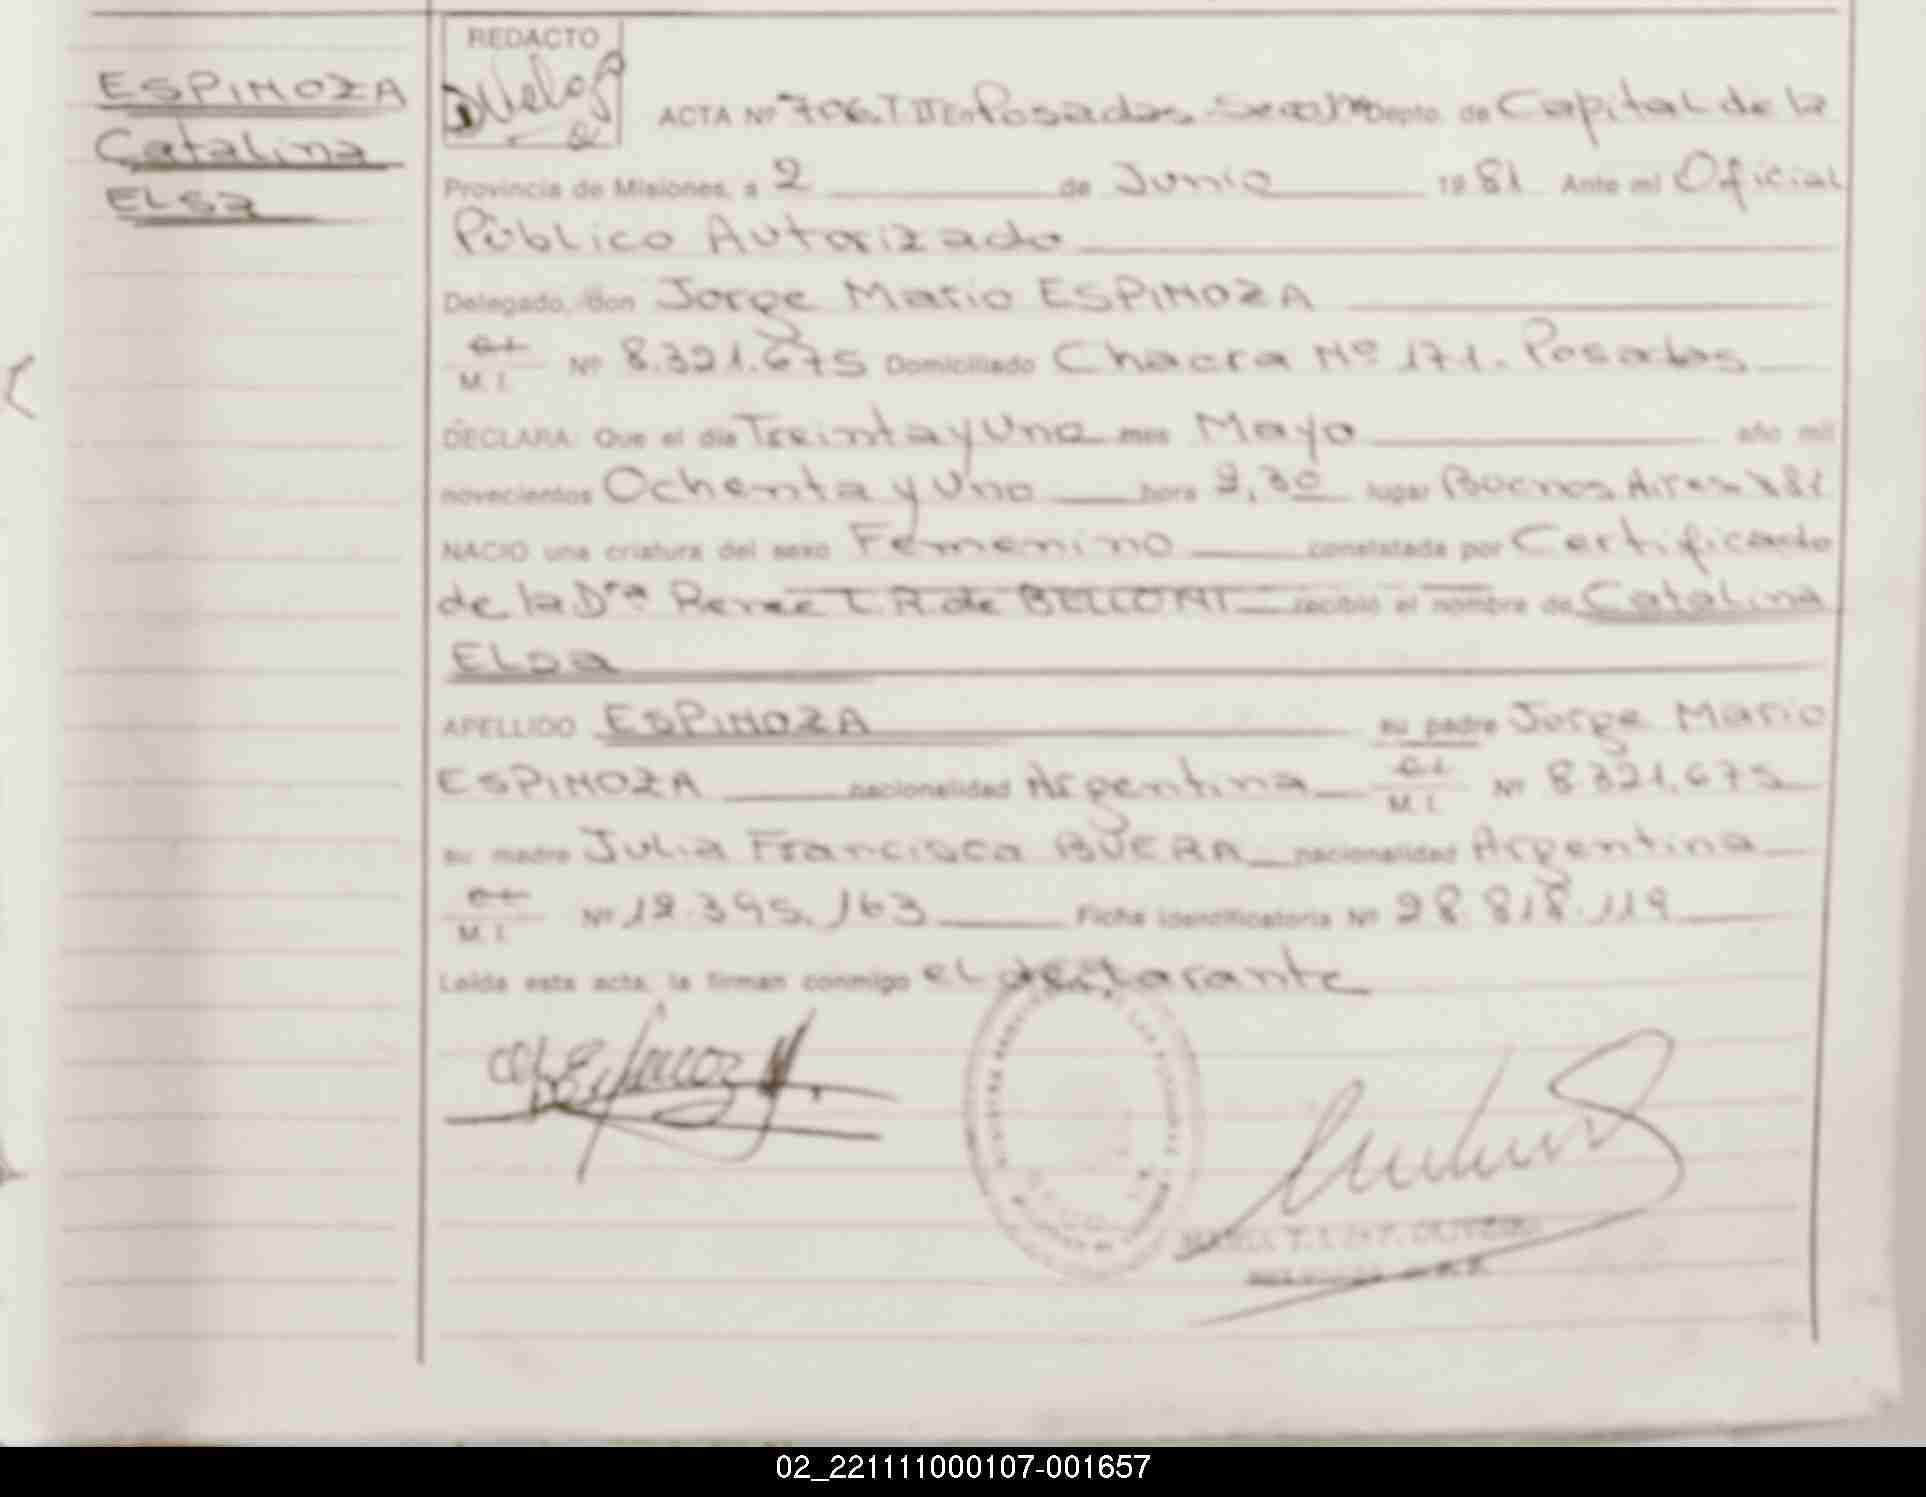 ESPINOZA
Catalina
ELSA
REDACTO
ACTA Nº 706. T II En Posadas Depto. de Capital de la
Provincia de Misiones, a 2 de Junio 1981 Ante mí Oficial
Público Autorizado
Delegado, don Jorge Mario ESPINOZA
C.I.
M. I. Nº 8.321.675 Domiciliado Chacra Nº 171. Posadas
DECLARA: Que el día Treinta y Uno mes Mayo año mil
novecientos Ochenta y Uno hora 9,30 lugar Buenos Aires
NACIO una criatura del sexo Femenino constatada por Certificado
de la Dra. Renee L. R. de BELLONI recibió el nombre de Catalina
ELSA
APELLIDO ESPINOZA su padre Jorge Mario
ESPINOZA nacionalidad Argentina C.I.
M. I. Nº 8.321.675
su madre Julia Francisca nacionalidad Argentina
C.I.
M. I. Nº 12.395.163 Ficha identificatoria Nº 28.818.119
Leída esta acta, la firman conmigo el declarante
MARIA T.
02_221111000107-001657